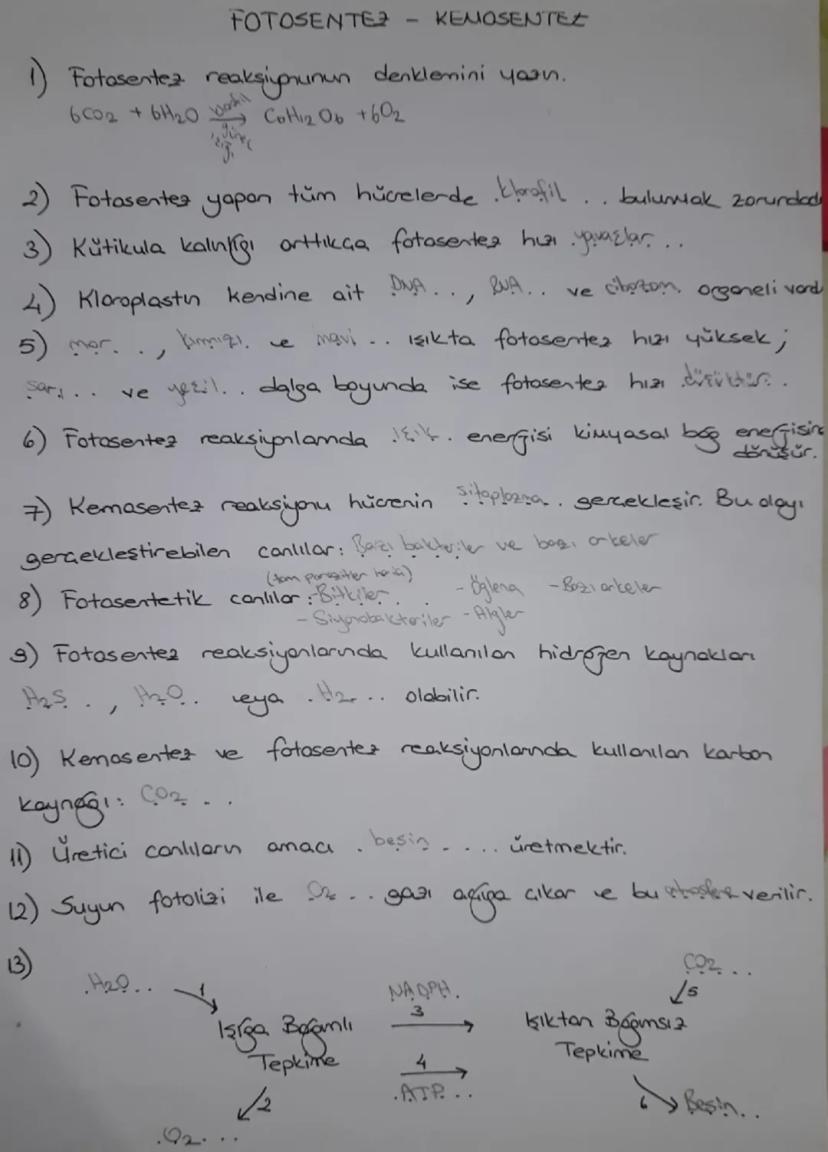 FOTOSENTEZ - KEMOSENTEZ
1) Fotosentez reaksiyonunun denklemini yazın.
6CO2 + 6H2O → C6H12O6 + 6O2
2) Fotosentez yapan tüm hücrelerde klorofil bulunmak zorundadı
3) Kütikula kalınlığı arttıkça fotosentez hızı yavaşlar...
4) Kloroplastın kendine ait DNA.., RNA.. ve ribozom. organeli vard
5) mor..., kırmızı. ve mavi.. ışıkta fotosentez hızı yüksek;
sarı.. ve yeşil.. dalga boyunda ise fotosentez hızı düşüktür..
6) Fotosentez reaksiyonlarında ışık. energisi kimyasal bağ energisine
dönüşür.
7) Kemosentez reaksiyonu hücrenin sitoplazma. gerçekleşir. Bu olayı
gerçekleştirebilen canlılar: Bazı bakteriler ve bazı arkeler
(tam parazitler hariç)
8) Fotosentetik canlılar: -Bitkiler.. -Öglena -Bazı arkeler
-Siyanobakteriler -Algler
9) Fotosentez reaksiyonlarında kullanılan hidrojen kaynakları
H2S.., H2O. veya .H2... olabilir.
10) Kemosentez ve fotosentez reaksiyonlarında kullanılan karbon
kaynağı: CO2...
11) Üretici canlıların amacı .besin.... üretmektir.
12) Suyun fotolizi ile O2... gazı açığa çıkar ve bu verilir.
13)
.H2O.. 1 NADPH. CO2...
3 5
Işığa Bağımlı Işıktan Bağımsız
Tepkime Tepkime
4
.ATP...
2 6 Besin..
.O2...